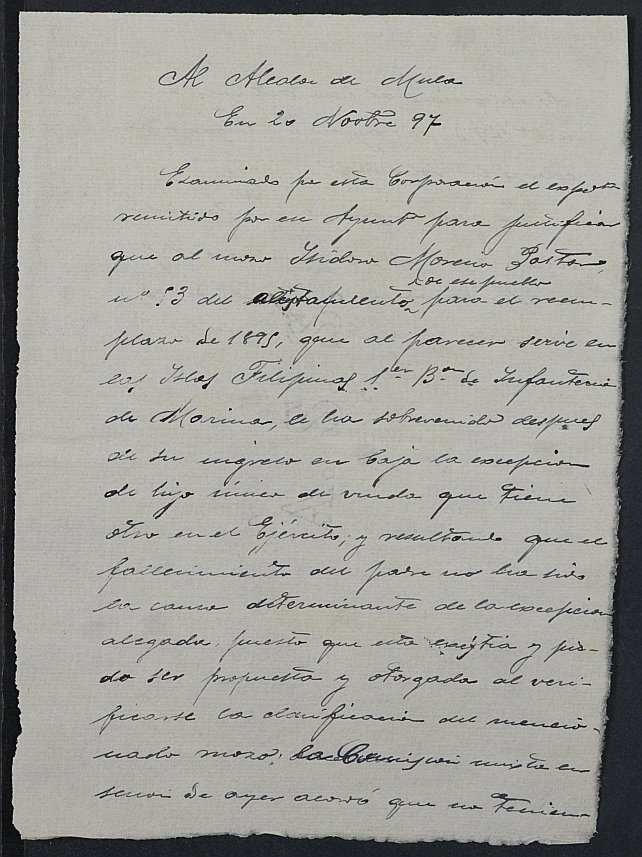 Al Alcalde de Mula
En 20 Novbre 97
Examinado por esta Corporación el expete
remitido por ese Aynt para justificar
que al mozo Isidoro Moreno Pastor,
de ese pueblo
nº 53 del alistamiento para el reem-
plazo de 1895, que al parecer sirve en
las Islas Filipinas 1er Bon de Infantería
de Marina, le ha sobrevenido despues
de su ingreso en Caja la excepcion
de hijo único de viuda que tiene
otro en el Ejército; y resultando que el
fallecimiento del padre no ha sido
la causa determinante de la excepcion
alegada, puesto que esta existia y pu-
do ser propuesta y otorgada al veri-
ficarse la clasificacion del mencio-
nado mozo; la Comision mixta en
sesion de ayer acordó que no tenien-